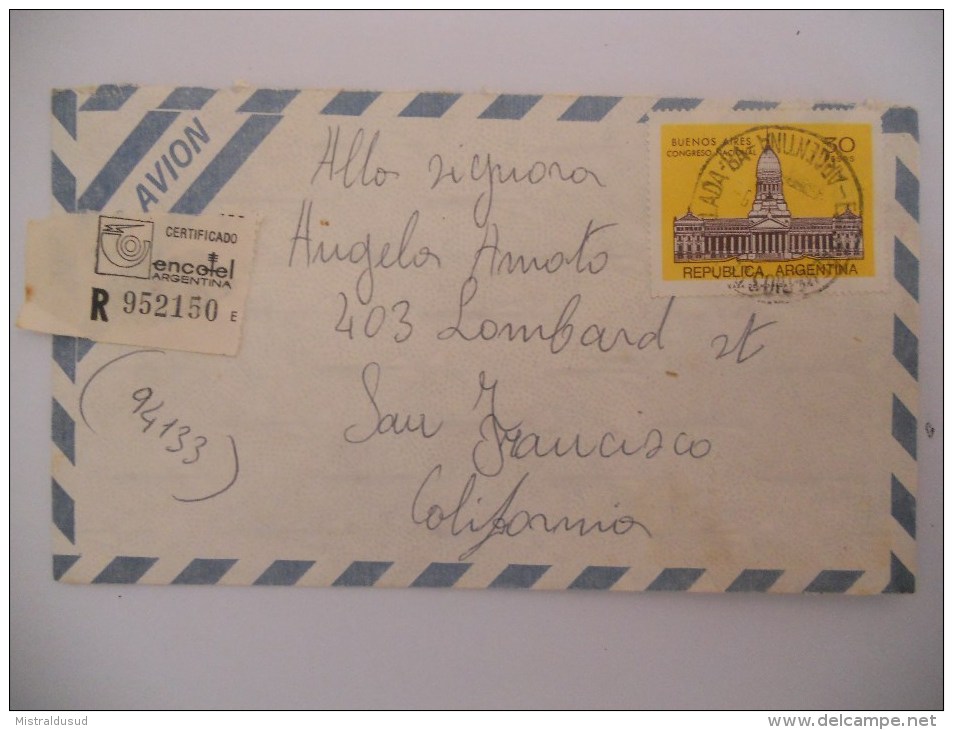 AVION
CERTIFICADO
encotel
ARGENTINA
R 952150 E
Allo signora
Angela Amato
403 Lombard st
San Francisco
California
(94133)
BUENOS AIRES
CONGRESO NACIONAL
50
PESOS
REPUBLICA ARGENTINA
ARGENTINA
Mistraldusud
http://www.delcampe.net